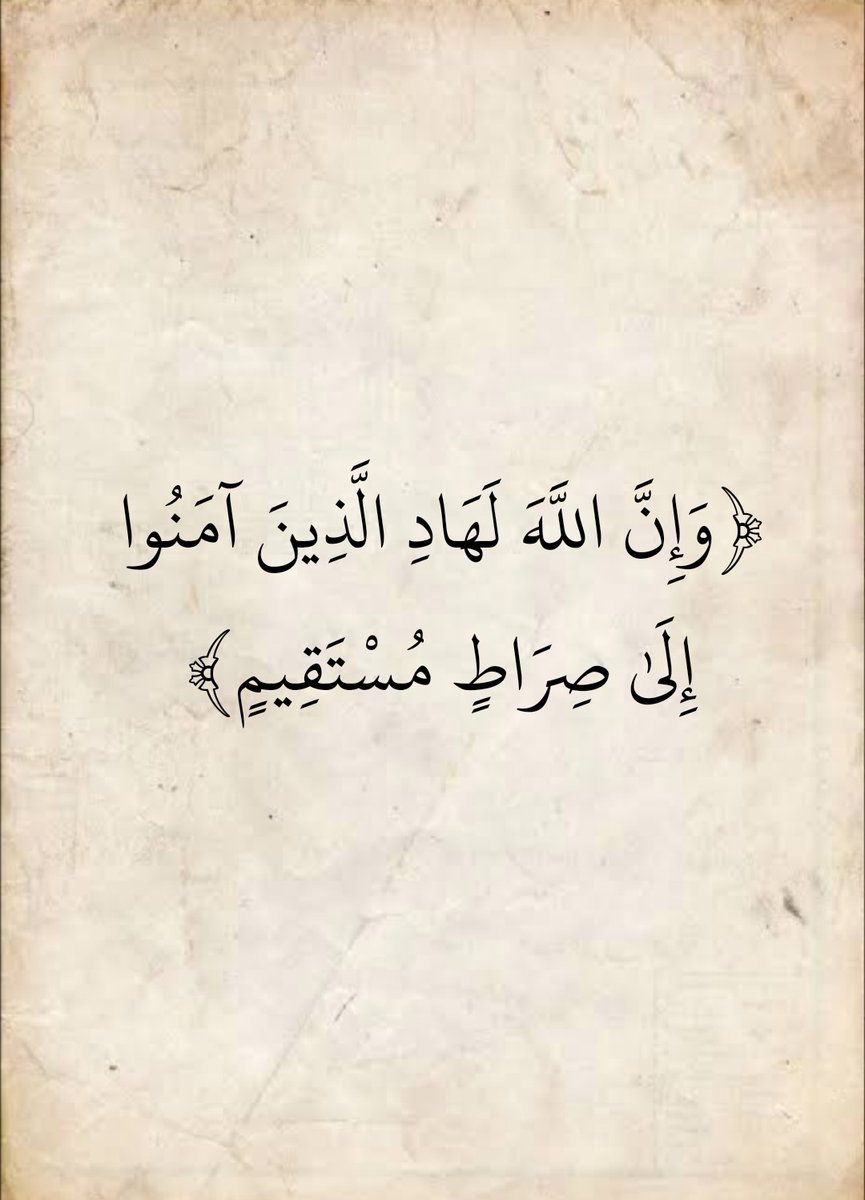 ﴿وَإِنَّ اللَّهَ لَهَادِ الَّذِينَ آمَنُوا
إِلَىٰ صِرَاطٍ مُسْتَقِيمٍ﴾